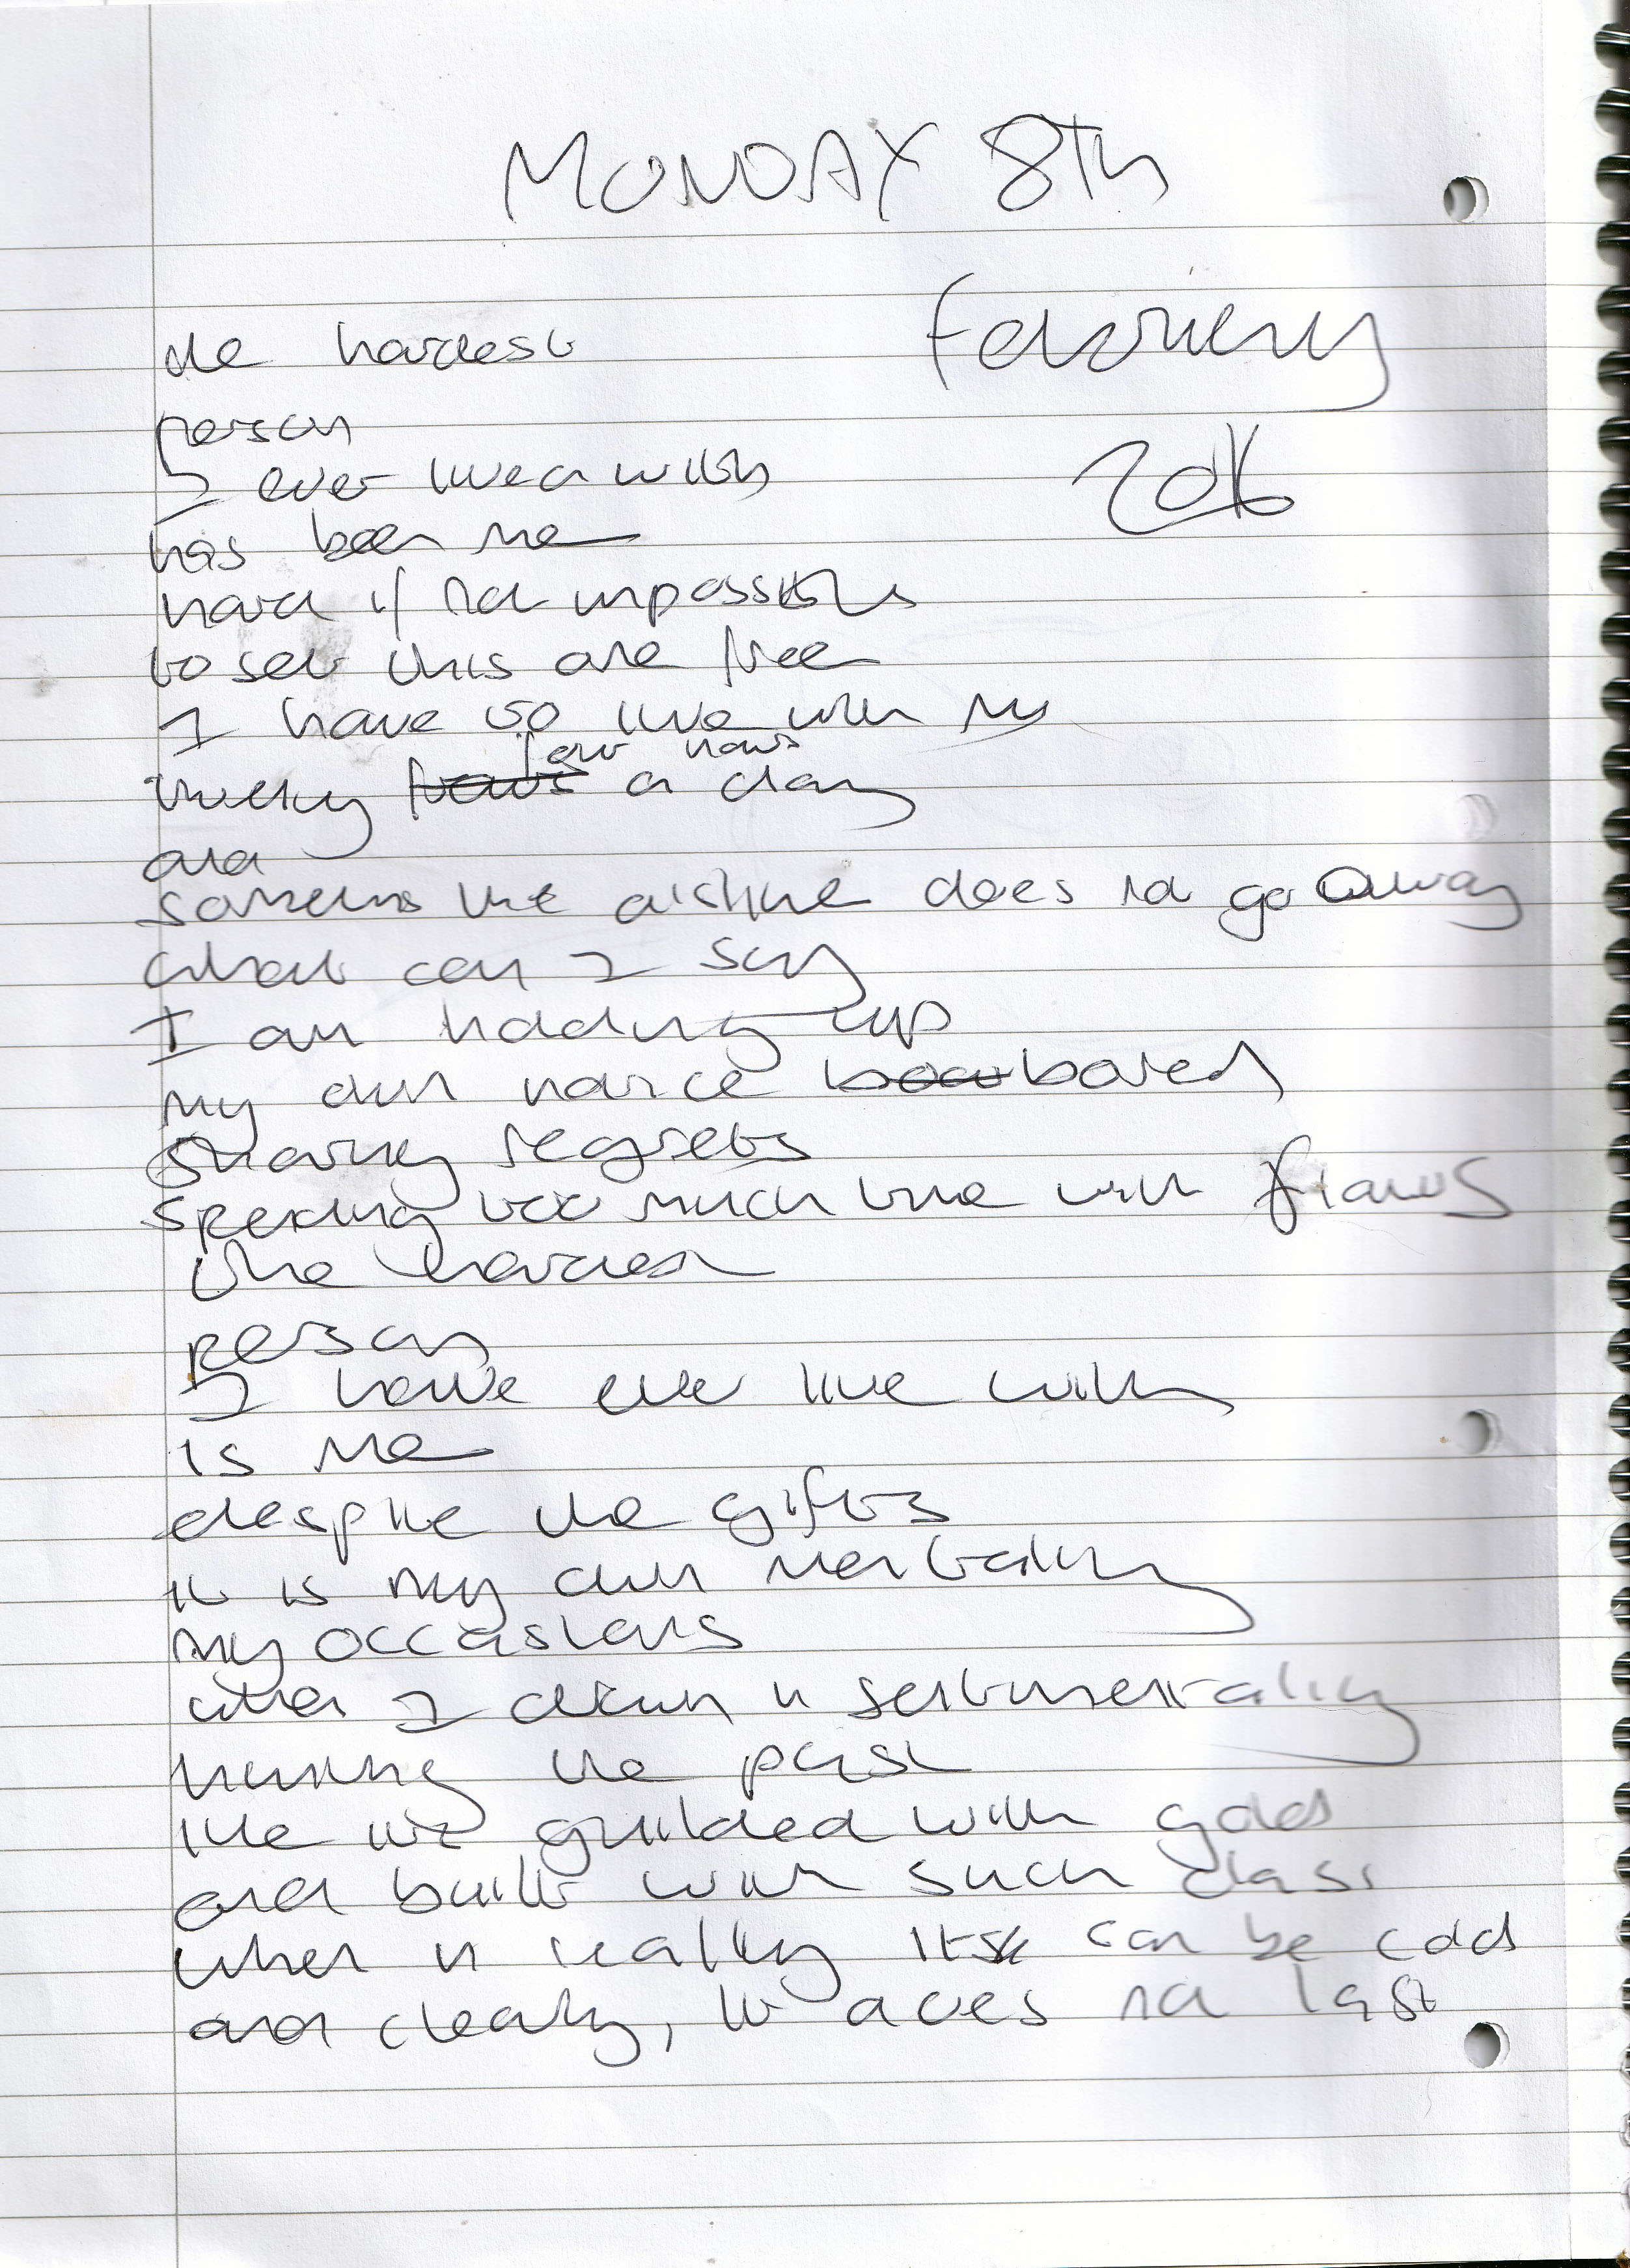 MONDAY 8Th
February
2016
the hardest
person
I ever lived with
has been me
hard if not impossible
to set this one free
I have to live with my
twenty four hours a day
and
sometimes the dislike does not go away
what can I say
I am holding up
my own bored
sharing regrets
spending too much time with flaws
the hardest
person
I have ever live with
is me
despite the gifts
it is my own mentality
my occasions
when I drown in sentimentality
thinking the past
like it's guilded with gold
and built with such class
when in reality it can be cold
and clearly, it does not last